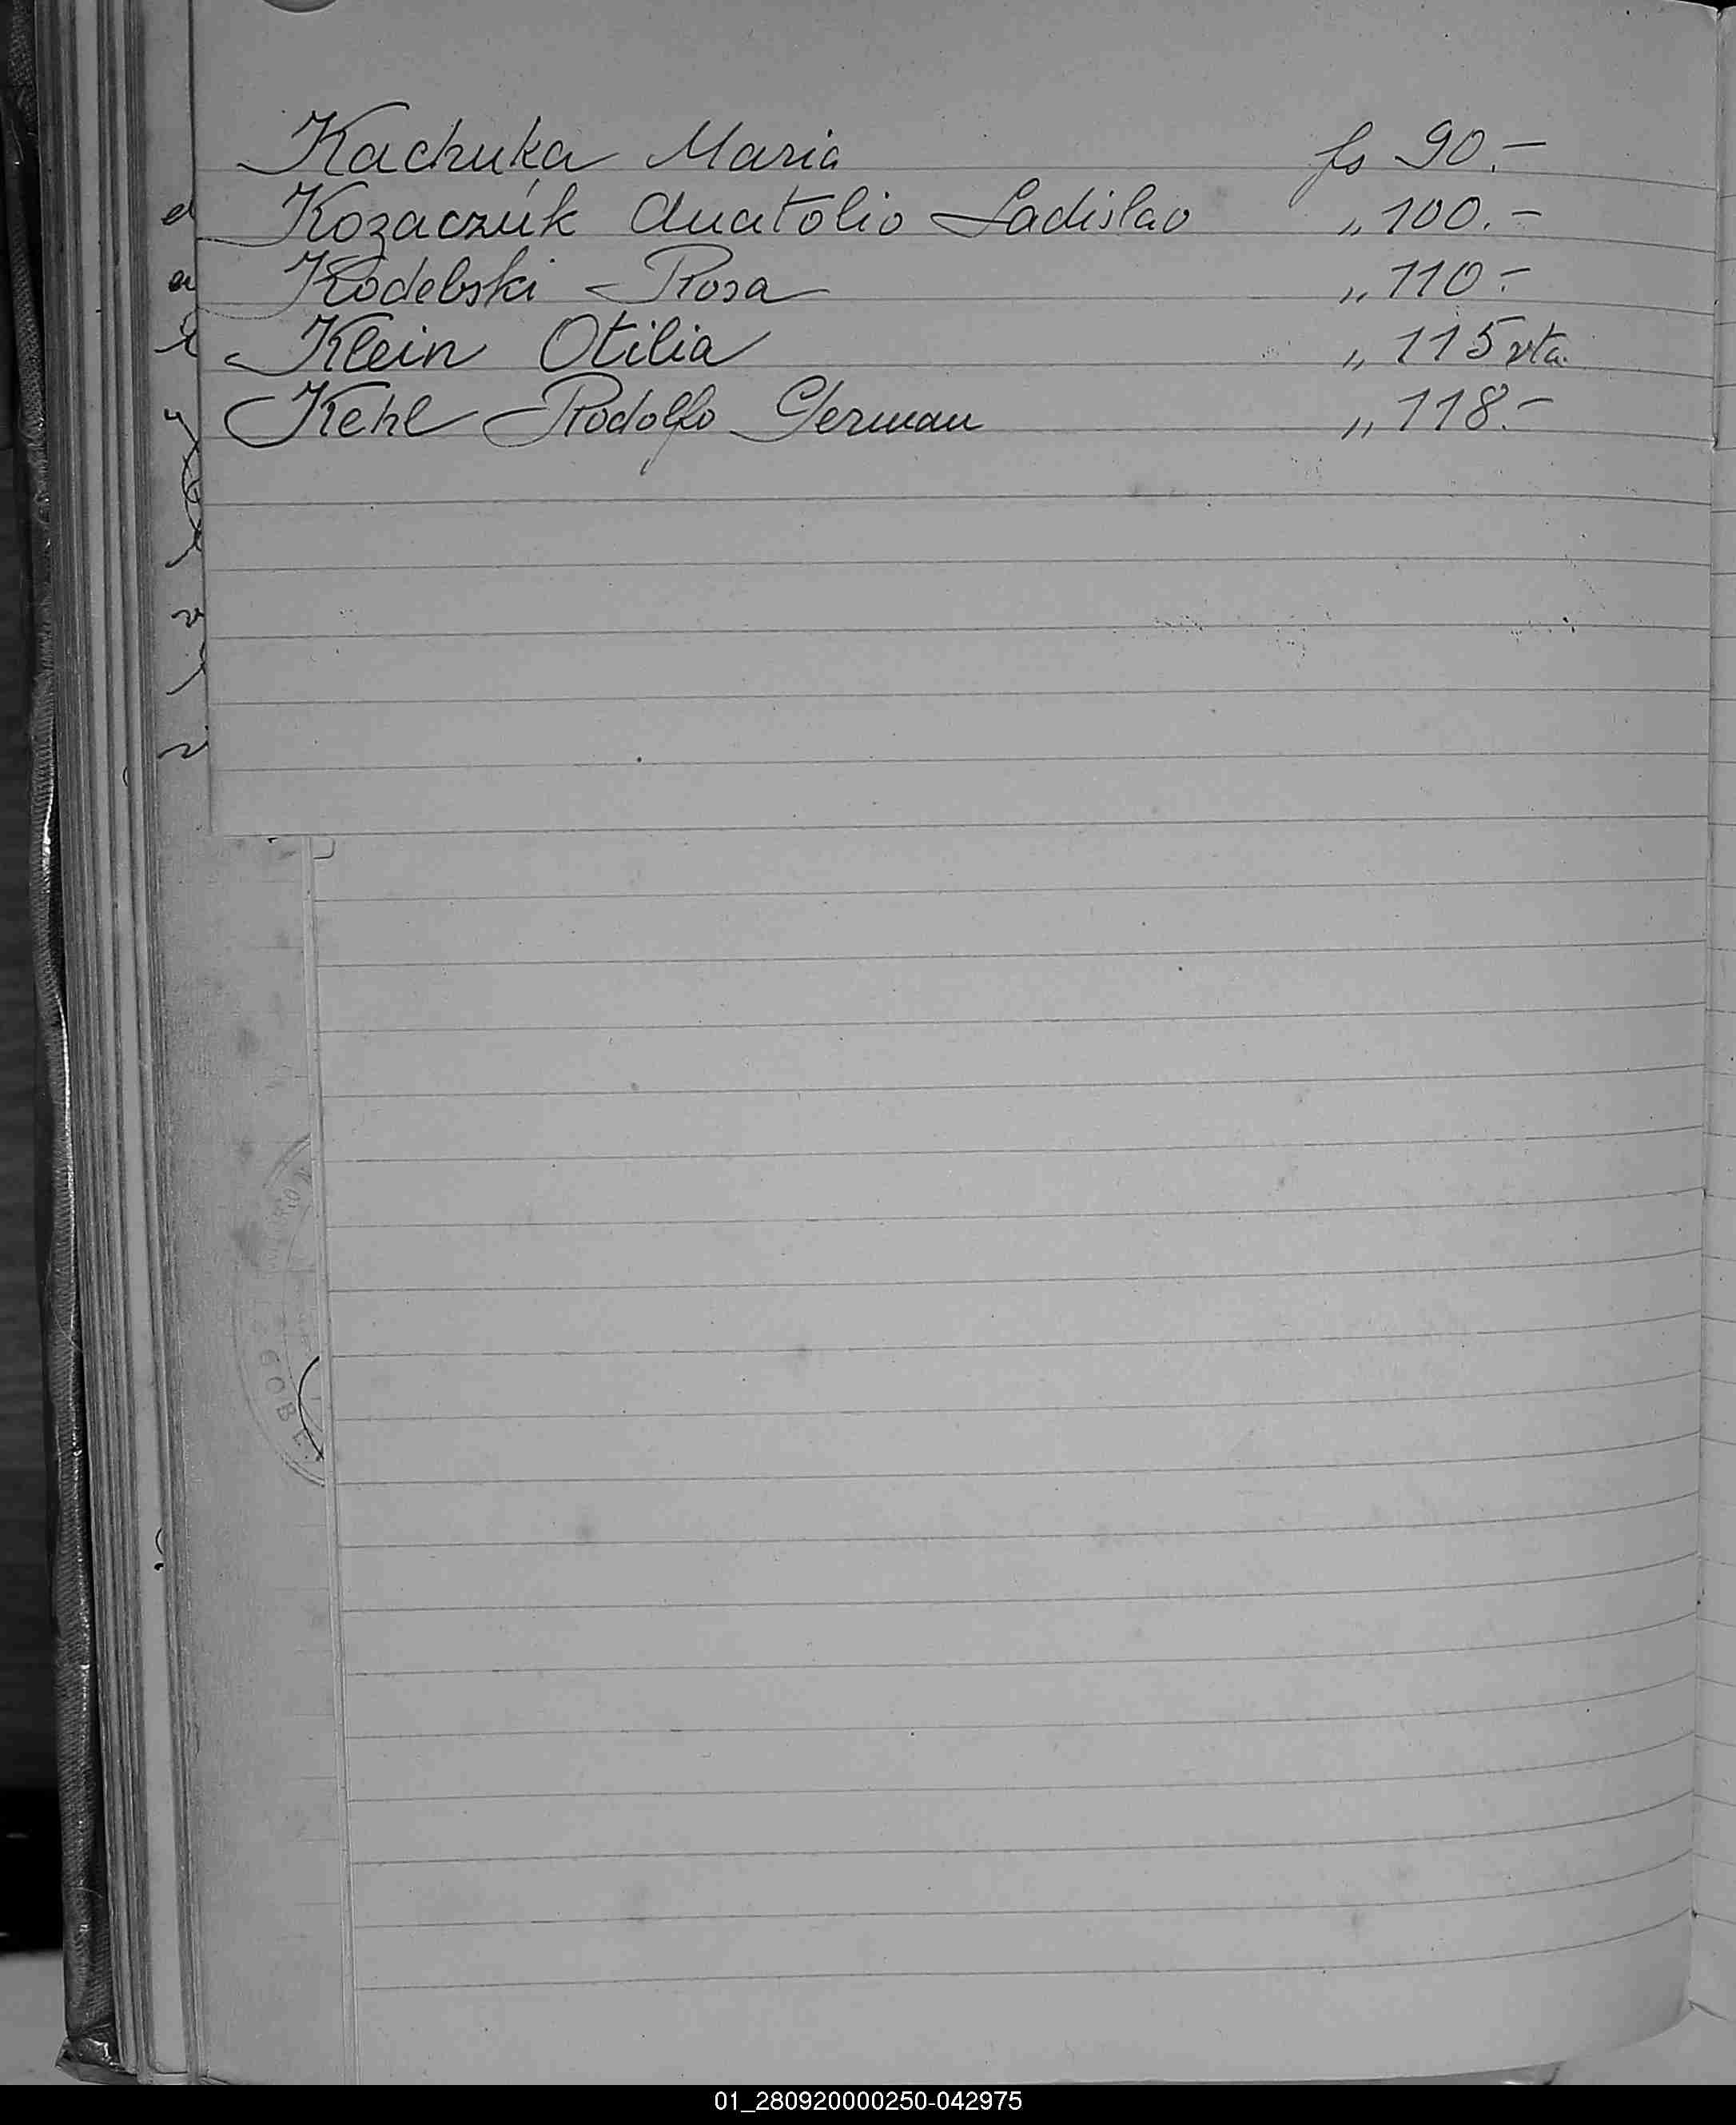 Kachuka Maria fs 90.-
Kozaczúk Anatolio Ladislao " 100.-
Kodebski Rosa " 110-
Klein Otilia " 115 vta.
Kehl Rodolfo German " 118.-
GOB
01_280920000250-042975